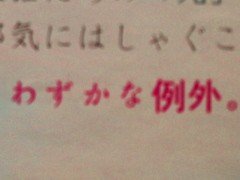 気にはしゃぐこ
わずかな例外。